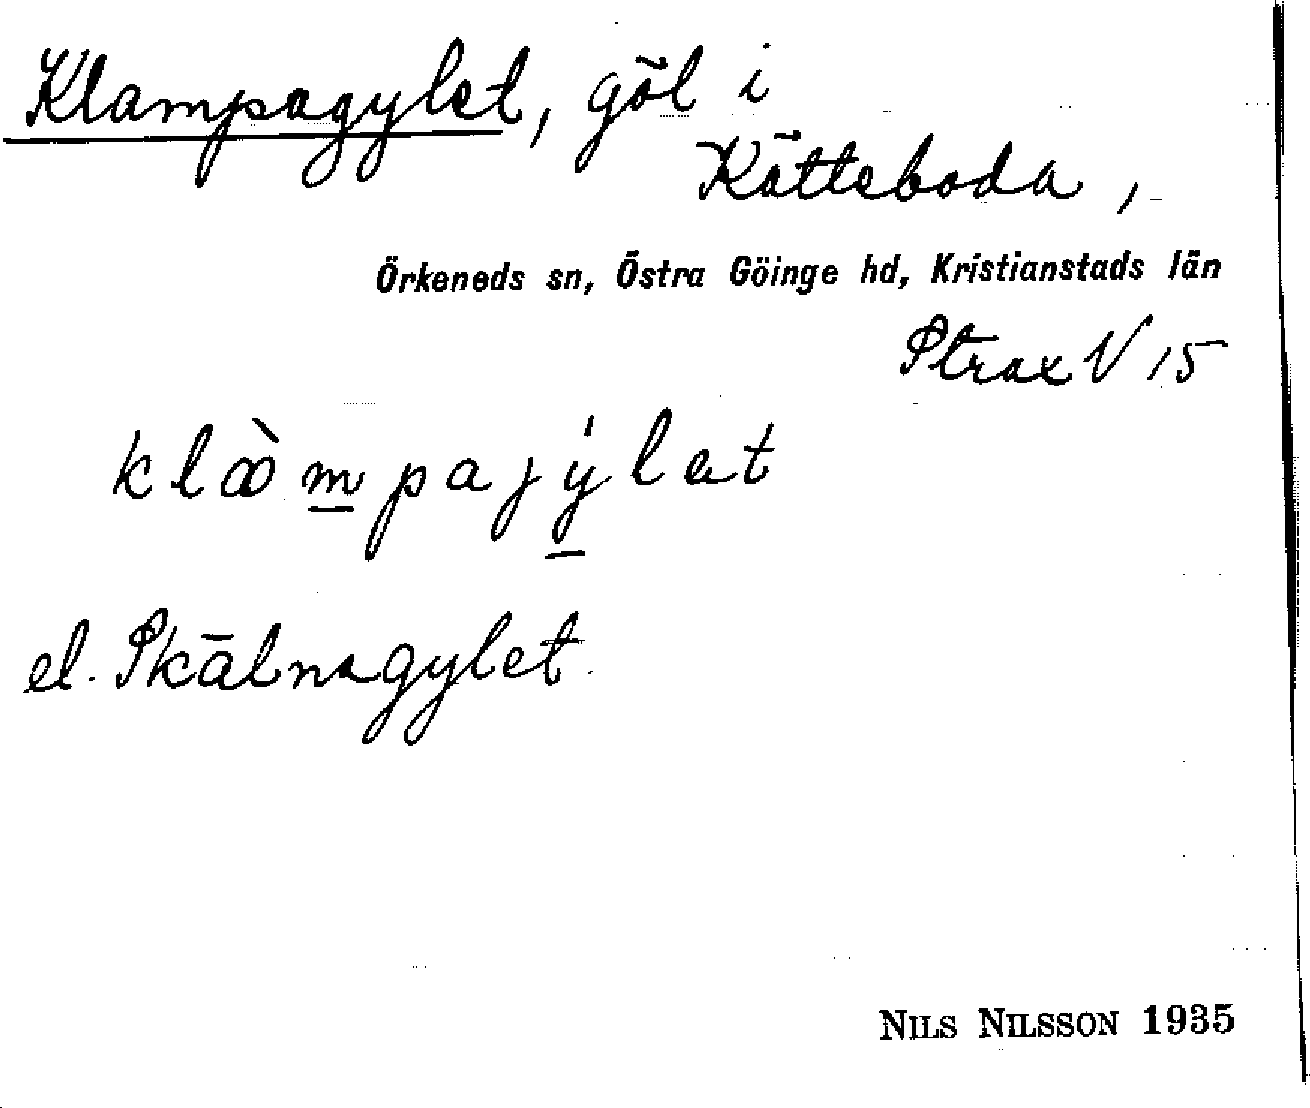 Klampagylet, göl i
Kätteboda,
Örkeneds sn, Östra Göinge hd, Kristianstads län
Strax V 15
el. Skälnagylet.
NILS NILSSON 1935